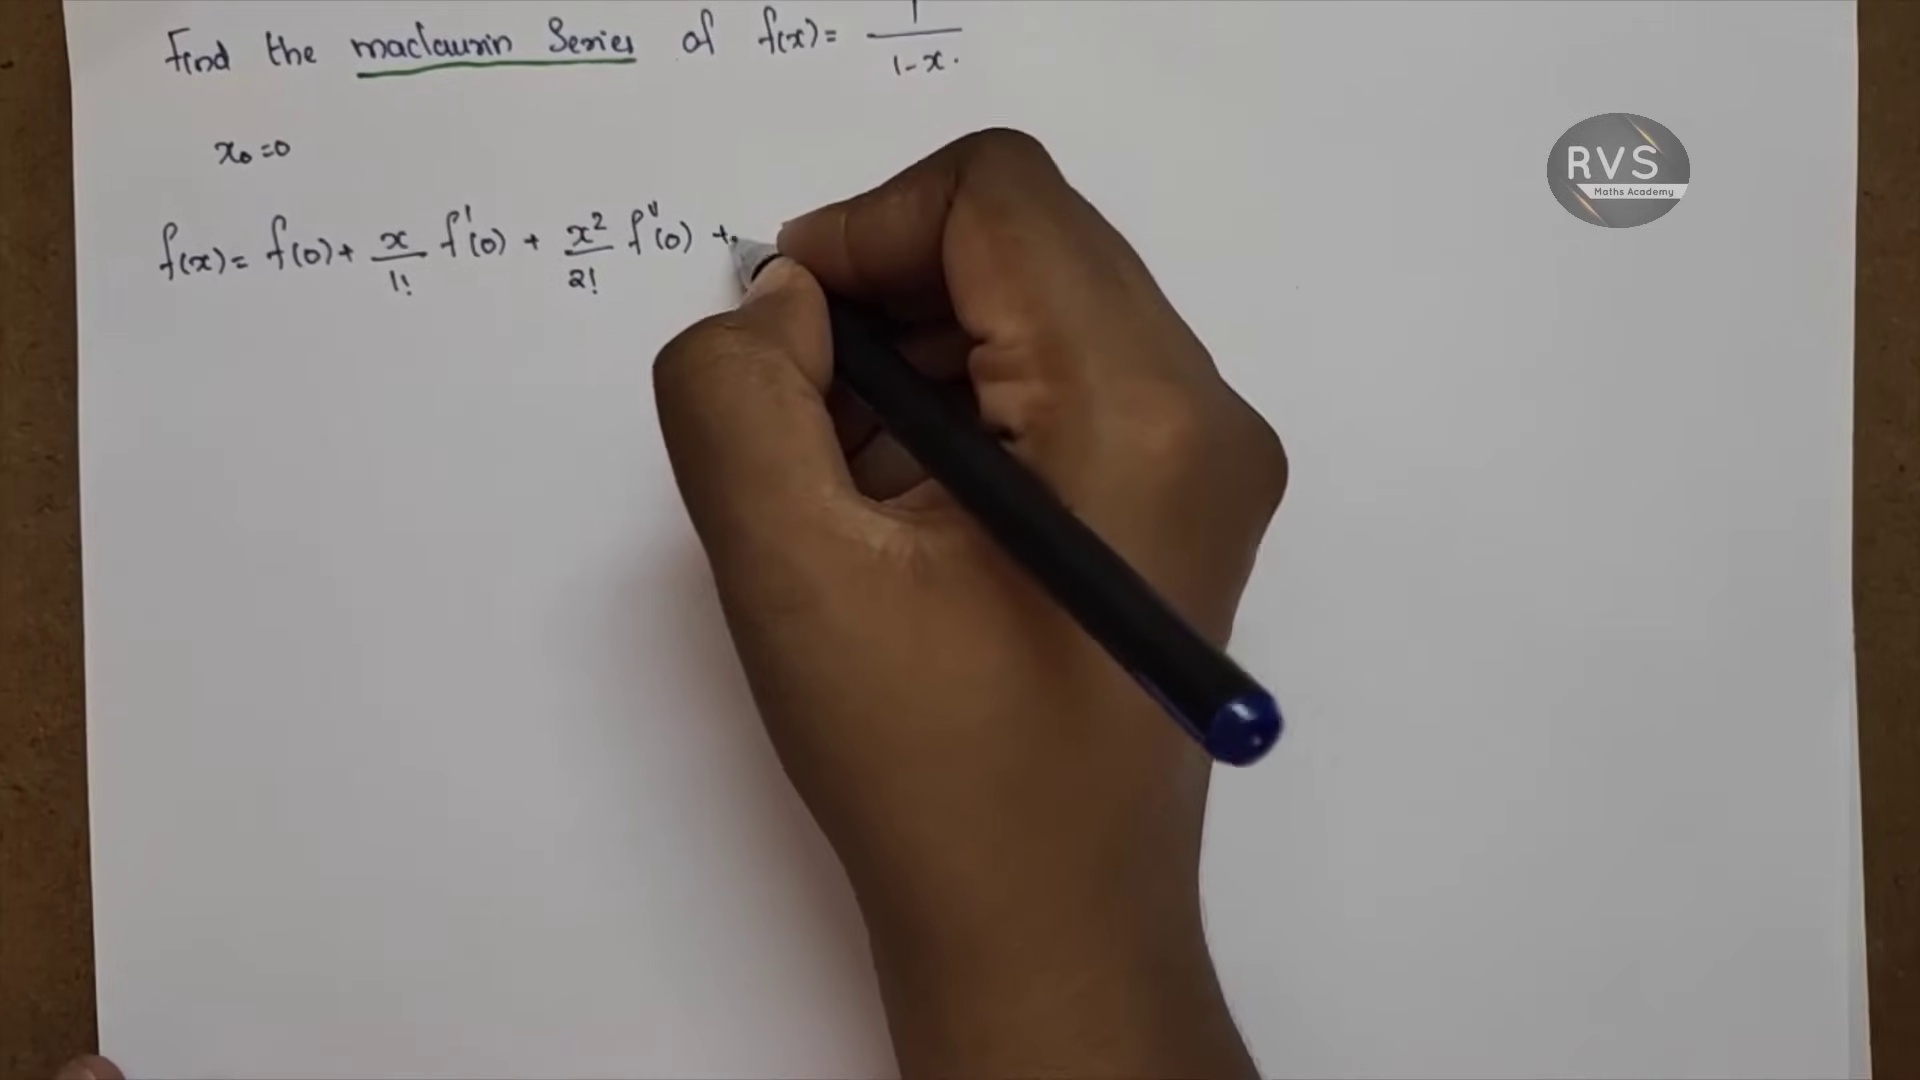 Find the maclaurin Series of f(x) = 1/(1-x).
x₀=0
f(x) = f(0) + x/1! f'(0) + x²/2! f''(0) +
RVS
Maths Academy